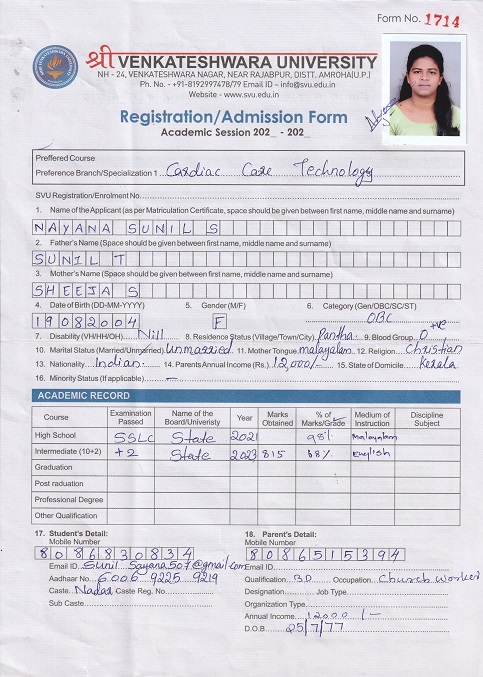 Form No. 1714
श्री VENKATESHWARA UNIVERSITY
NH - 24, VENKATESHWARA NAGAR, NEAR RAJABPUR, DISTT. AMROHA(U.P.)
Ph. No. - +91-8192997478/79 Email ID – info@svu.edu.in
Website - www.svu.edu.in
Registration/Admission Form
Academic Session 202_ - 202_
Preffered Course
Preference Branch/Specialization 1 Cardiac Care Technology
SVU Registration/Enrolment No.
1. Name of the Applicant (as per Matriculation Certificate, space should be given between first name, middle name and surname)
NAYANA SUNIL S
2. Father's Name (Space should be given between first name, middle name and surname)
SUNIL T
3. Mother's Name (Space should be given between first name, middle name and surname)
SHEEJA S
4. Date of Birth (DD-MM-YYYY) 5. Gender (M/F) 6. Category (Gen/OBC/SC/ST)
19082004 F OBC
7. Disability (VH/HH/OH) Nill 8. Residence Status (Village/Town/City) Pantha 9. Blood Group O +ve
10. Marital Status (Married/Unmarried) Unmarried 11. Mother Tongue malayalam 12. Religion Christian
13. Nationality Indian 14. Parents Annual Income (Rs.) 12,000/- 15. State of Domicile Kerala
16. Minority Status (If applicable) -
ACADEMIC RECORD
Course Examination Passed Name of the Board/Univeristy Year Marks Obtained % of Marks/Grade Medium of Instruction Discipline Subject
High School SSLC State 2021 98% Malayalam
Intermediate (10+2) +2 State 2023 815 68% English
Graduation
Post raduation
Professional Degree
Other Qualification
17. Student's Detail: 18. Parent's Detail:
Mobile Number Mobile Number
8086830834 8086515394
Email ID Sunil Sayana507@gmail.com Email ID
Aadhaar No. 6006 9225 9219 Qualification BD Occupation Church worker
Caste Nadar Caste Reg. No. Designation Job Type
Sub Caste Organization Type
Annual Income 12000/-
D.O.B 25/7/77